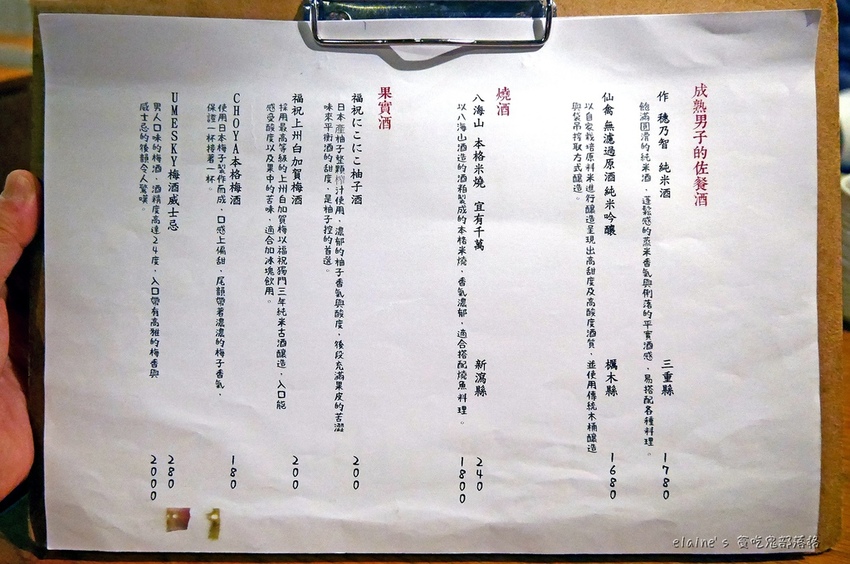 成熟男子的佐餐酒
作 穗乃智 純米酒 三重縣 1780
飽滿圓滑的純米酒，蓬鬆感的蒸米香氣與俐落的平實酒感，易搭配各種料理。
仙禽 無濾過原酒純米吟釀 櫔木縣 1680
以自家栽培原料米進行釀造呈現出高甜度及高酸度酒質，並使用傳統木桶釀造
與袋吊搾取方式釀造。
燒酒
八海山 本格米燒 宜有千萬 新瀉縣 240 1800
以八海山酒造的酒粕製成的本格米燒，香氣濃郁，適合搭配燒魚料理。
果實酒
福祝にこにこ柚子酒 200
日本產柚子整顆搾汁使用，濃郁的柚子香氣與酸度，後段充滿果皮的苦澀
味來平衡酒的甜度，是柚子控的首選。
福祝上州白加賀梅酒 200
採用最高等級的上州白加賀梅以福祝獨門三年純米古酒釀造，入口能
感受酸度以及果中的苦味，適合加冰塊飲用。
CHOYA本格梅酒 180
使用日本梅子製作而成，口感上偏甜、尾韻帶著濃濃的梅子香氣，
保證一杯接著一杯。
UMESKY梅酒威士忌 280 2000
男人口味的梅酒，酒精度高達24度，入口帶有高雅的梅香與
威士忌的後韻令人驚嘆。
elaine's 貪吃鬼部落格